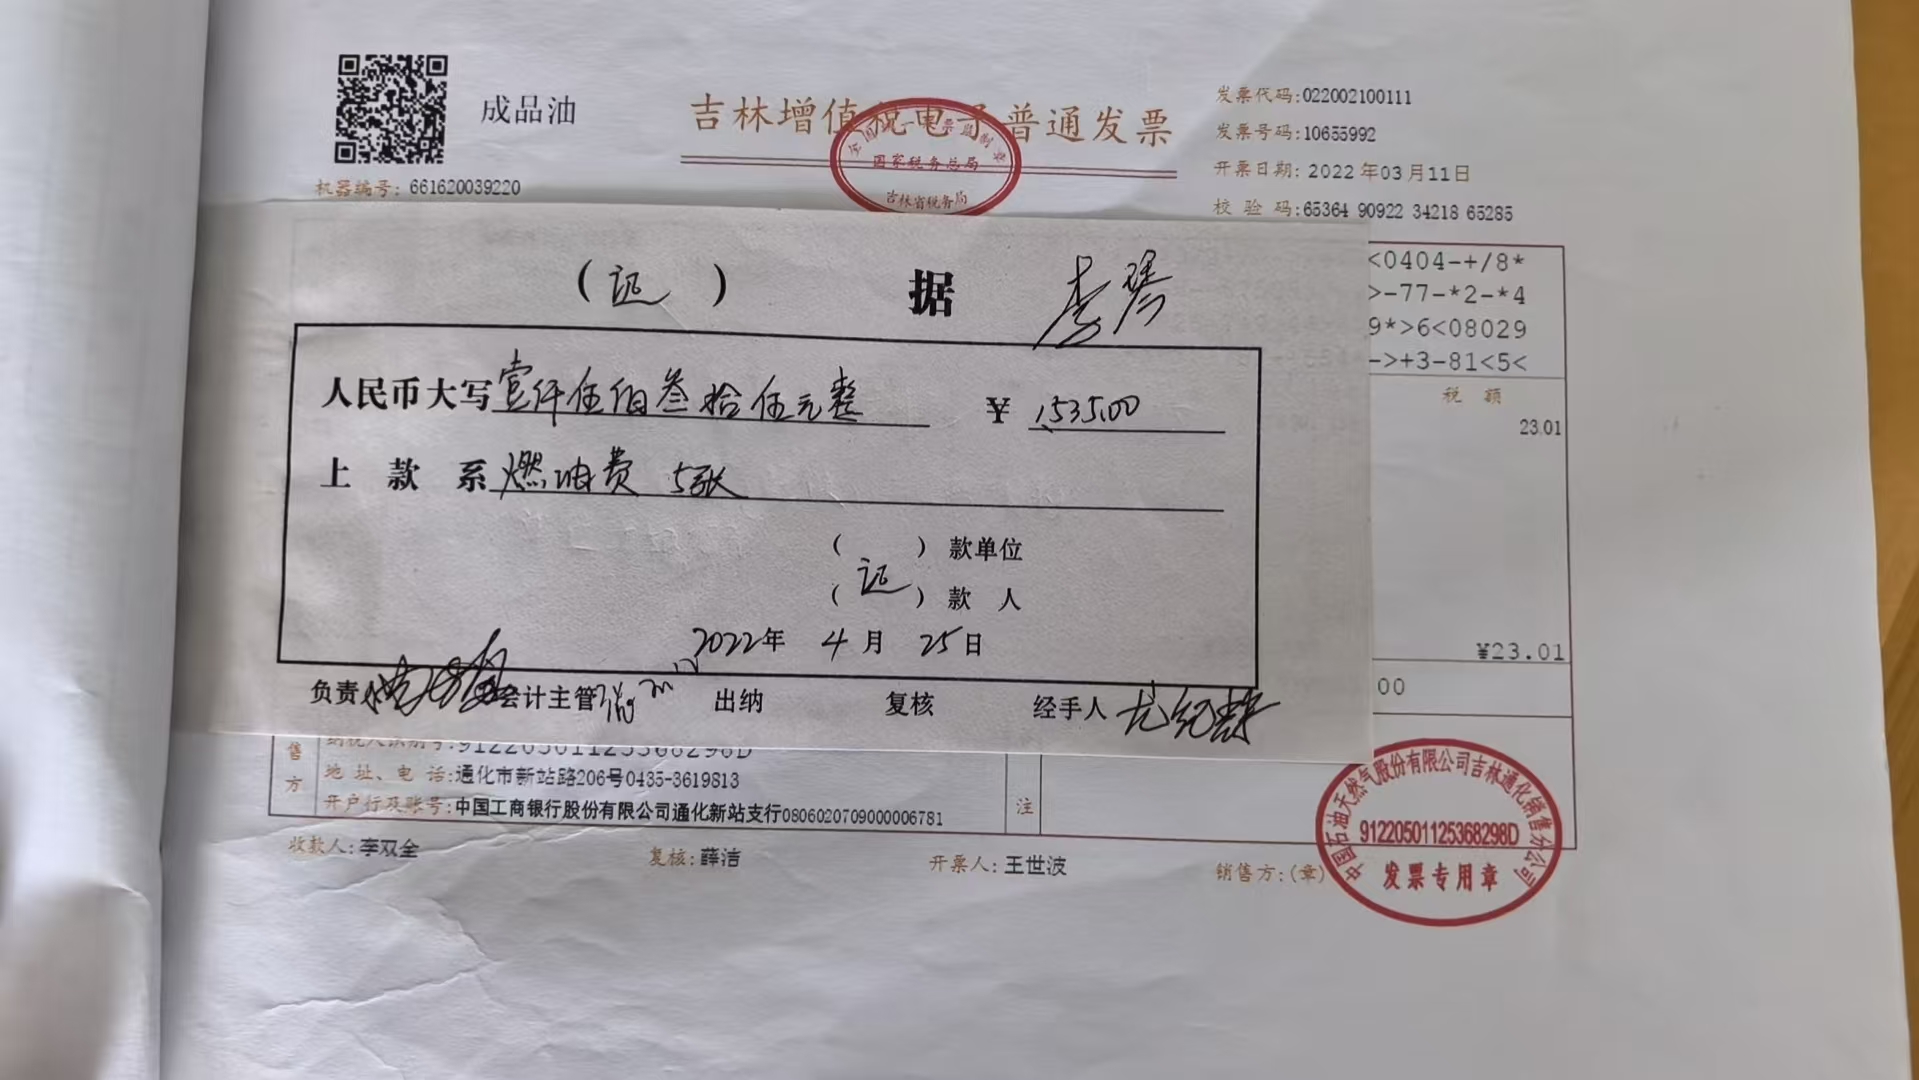 成品油
吉林增值税电子普通发票
国家税务总局
吉林省税务局
发票代码:022002100111
发票号码:10655992
开票日期: 2022年03月11日
校 验 码:65364 90922 34218 65285
机器编号: 661620039220
<0404-+/8*
>-77-*2-*4
9*>6<08029
->+3-81<5<
税 额
23.01
¥23.01
00
( ) 据 李琴
人民币大写壹仟伍佰叁拾伍元整 ¥ 1,535.00
上 款 系 燃油费 5张
( ) 款单位
( ) 款 人
2022年 4月 25日
负责人 会计主管 出纳 复核 经手人
售
方
纳税人识别号:91220501125368298D
地 址、电 话:通化市新站路206号0435-3619813
开户行及账号:中国工商银行股份有限公司通化新站支行0806020709000006781
注
收款人:李双全 复核:薛洁 开票人:王世波 销售方:(章)
中国石油天然气股份有限公司吉林通化销售分公司
91220501125368298D
发票专用章